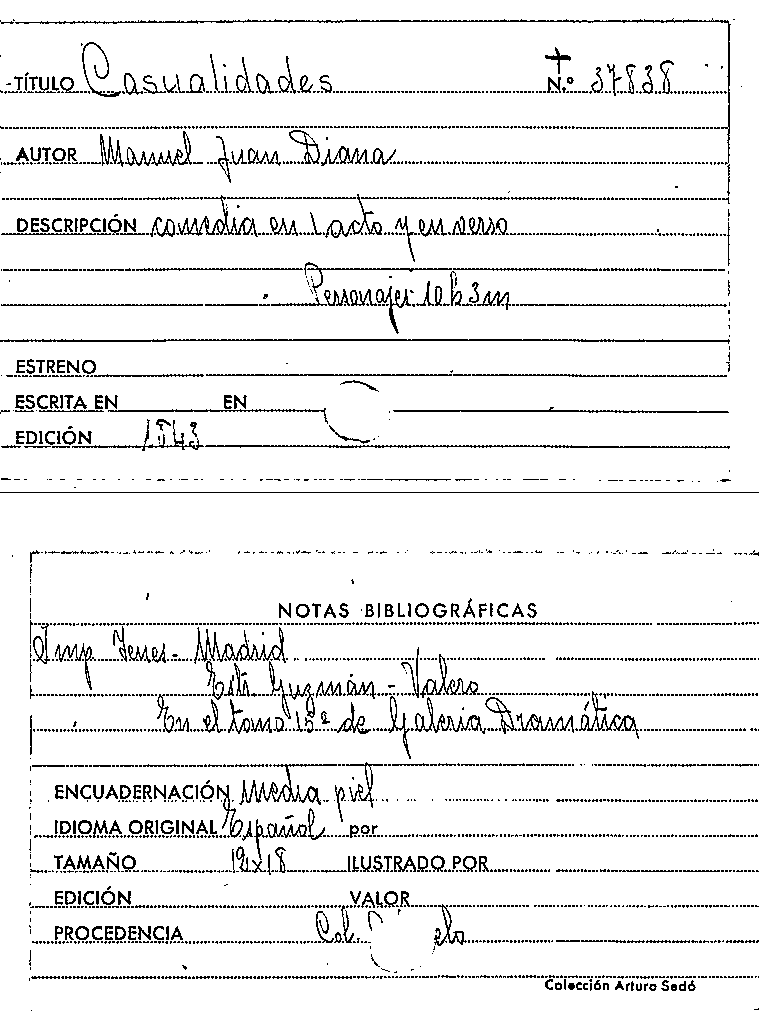 TÍTULO Casualidades N.º 37838
AUTOR Manuel Juan Diana
DESCRIPCIÓN comedia en 1 acto y en verso
Personajes 10 h 3 m
ESTRENO
ESCRITA EN EN
EDICIÓN
NOTAS BIBLIOGRÁFICAS
Imp Yenes - Madrid
Estr. Guzmán - Valero
En el tomo 15º de Galeria Dramática
ENCUADERNACIÓN Media piel
IDIOMA ORIGINAL Español por
TAMAÑO 12x18 ILUSTRADO POR
EDICIÓN VALOR
PROCEDENCIA Col.
Colección Arturo Sedó